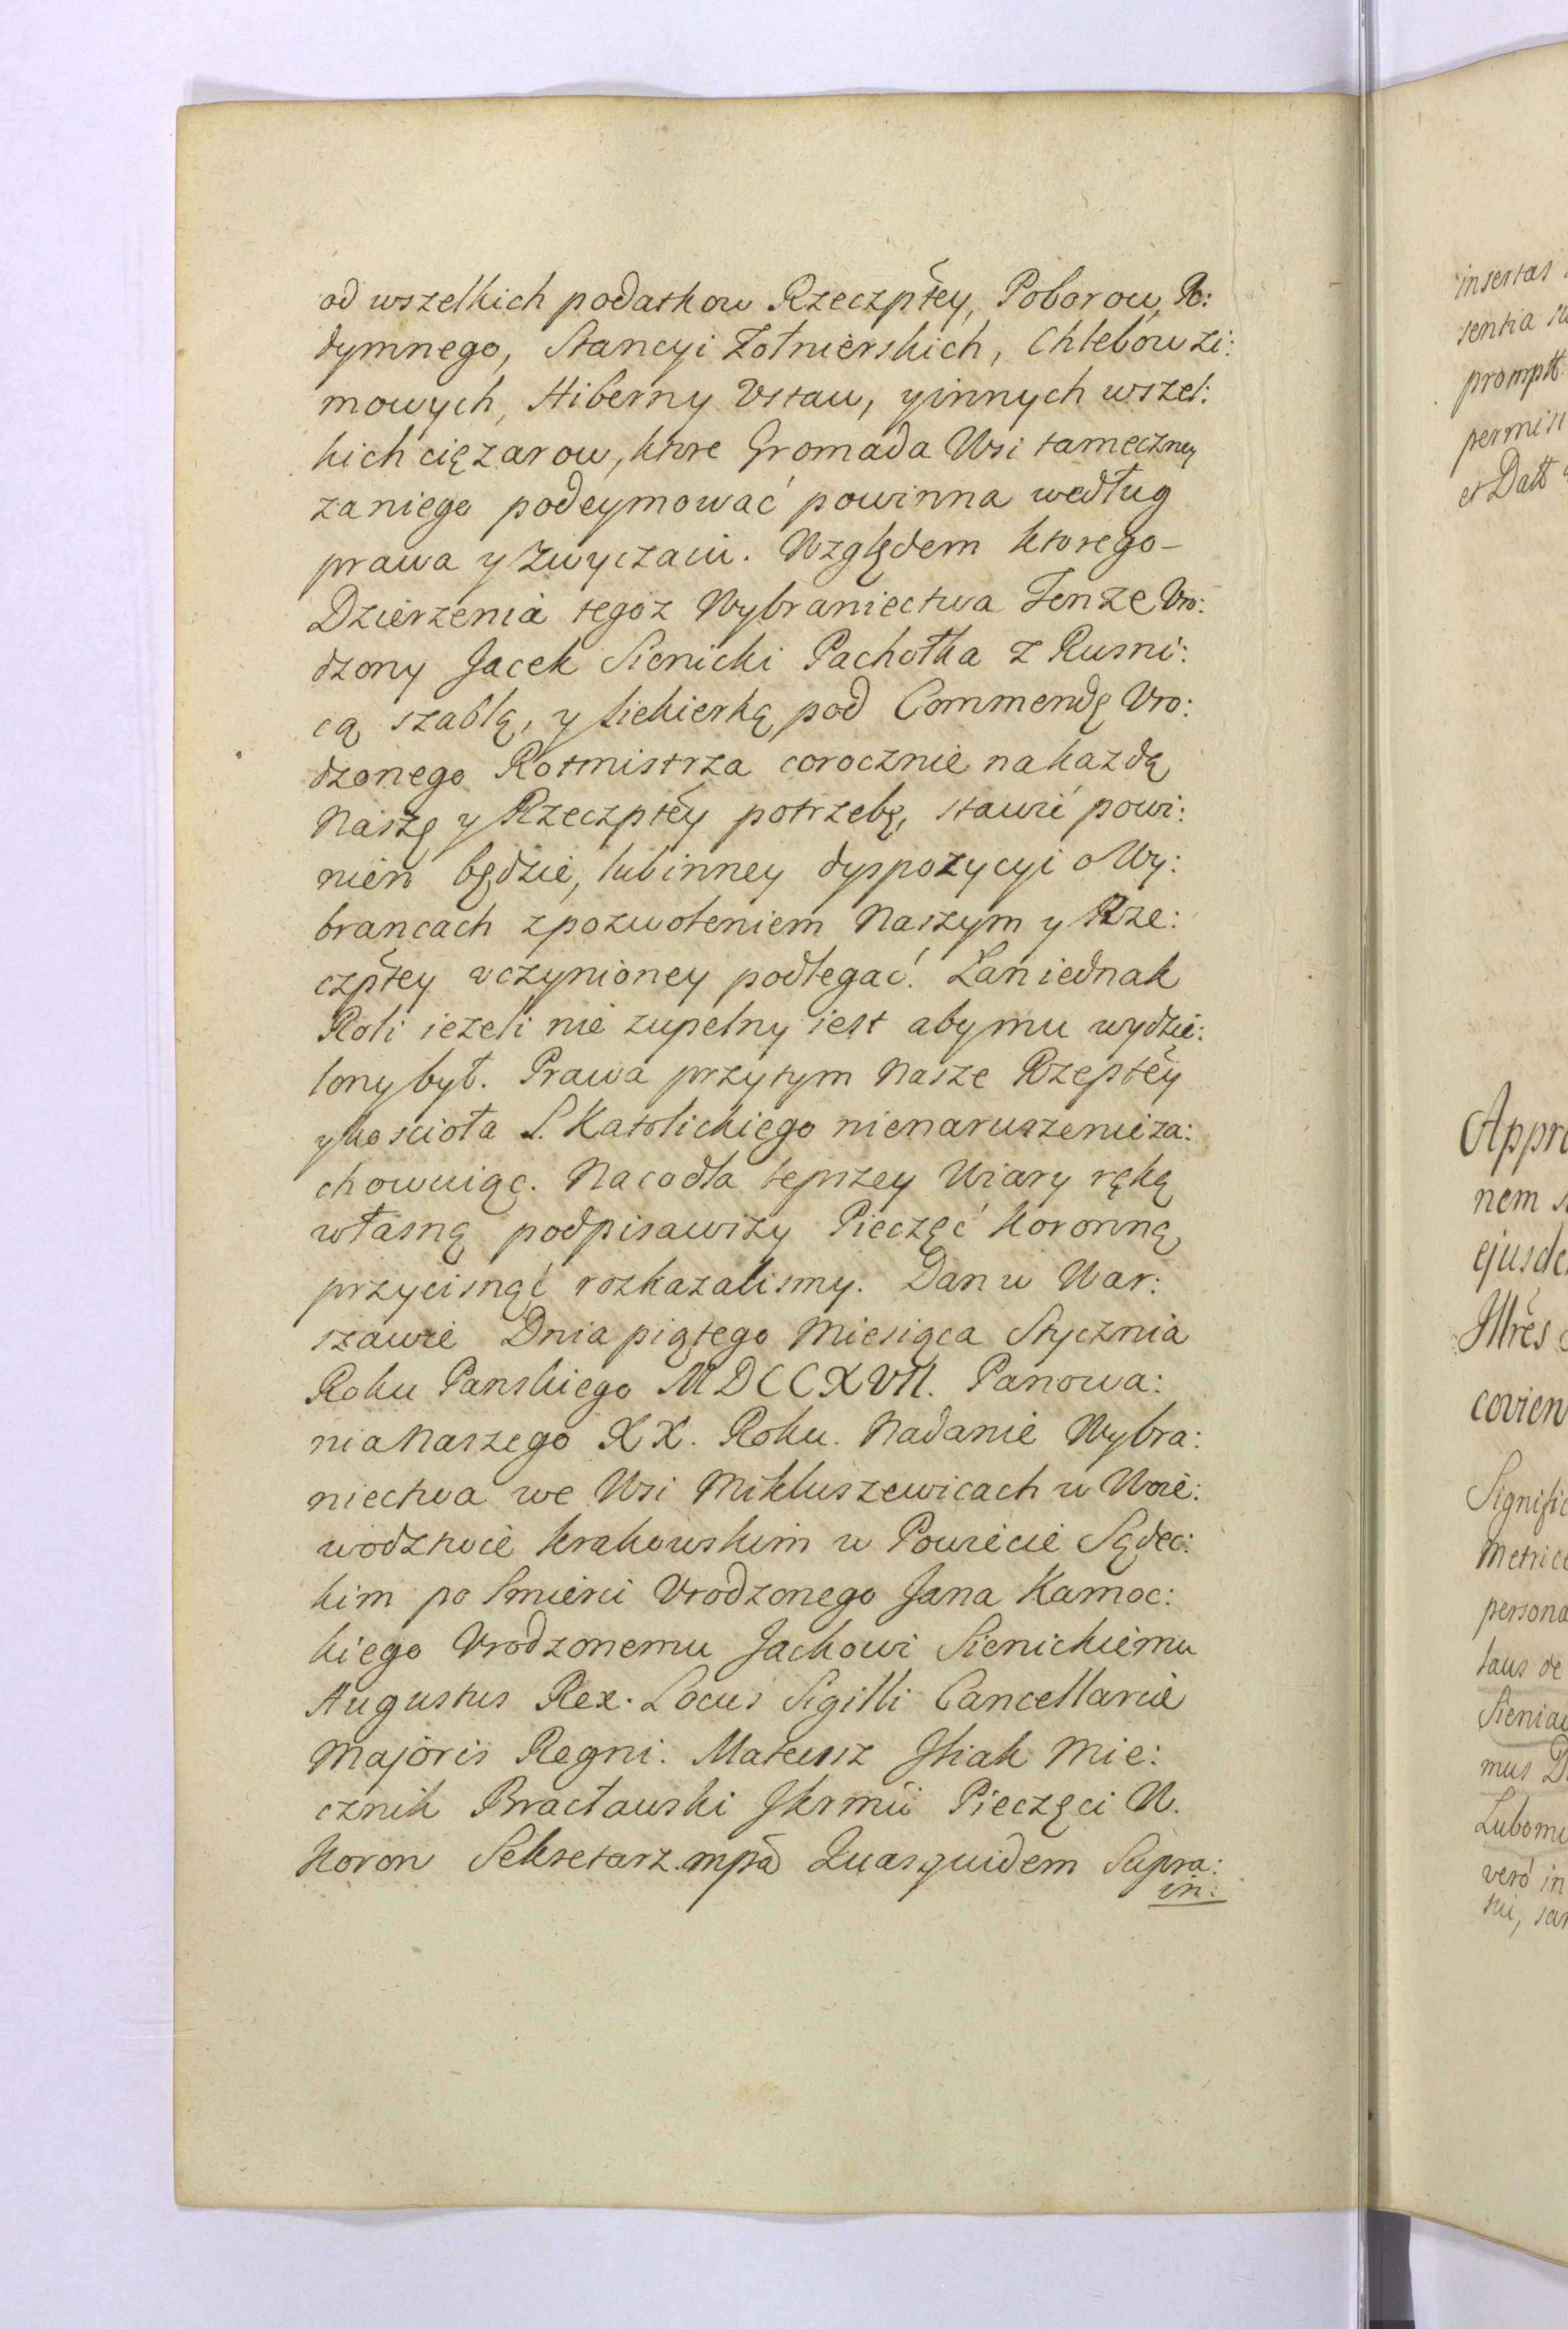 od wszelkich podatkow Rzeczpłey, Poborow, Po:
dymnego, Stancyi Zołnierskich, Chlebow zi:
mowych, Hiberny Vstaw, y innych wszel:
kich cięzarow, ktore Gromada Wsi tameczney
za niego podeymować powinna według
prawa y zwyczaiu. Względem ktorego-
Dzierzenia tegoz Wybraniectwa Tenze Vro:
dzony Jacek Sienicki Pachołka z Rusni:
cą szablą, y siekierką pod Commendę Vro:
dzonego Rotmistrza corocznie na kazdą
Naszę y Rzeczpłey potrzebę, stawić powi:
nien będzie, lub inney dyspozycyi o Wy:
brancach z pozwoleniem Naszym y Rze:
czpłey vczynioney podlegać. Łan iednak
Roli iezeli nie zupelny iest aby mu wydzie:
lony był. Prawa przytym Nasze Rzepłey
y kościoła S. Katolickiego nienaruszenie za:
chowuiąc. Na co dla lepszey Wiary ręką
własną podpisawszy Pieczęć Koronną
przycisnąć rozkazalismy. Dan w War:
szawie Dnia piątego Miesiąca Stycznia
Roku Panskiego MDCCXVII. Panowa:
nia Naszego XX. Roku. Nadanie Wybra:
niectwa we Wsi Mikluszewicach w Woie:
wodztwie Krakowskim w Powiecie Sądec:
kim po Smierci Vrodzonego Jana Kamoc:
kiego Vrodzonemu Jackowi Sienickiemu
Augustus Rex. Locus Sigilli Cancellariæ
Majoris Regni. Mateusz Jsiak Mie:
cznik Bracławski Jkrmći Pieczęci W.
Koron Sekretarz. mpā Quasquidem Supra:
in:
insertas
sentia
promptt
permis
et Datt
Appro
nem
ejusde
Jllrĕs
covien
Signific
Metric
persona
taus de
Sienia
mus
Lubomi
verò in